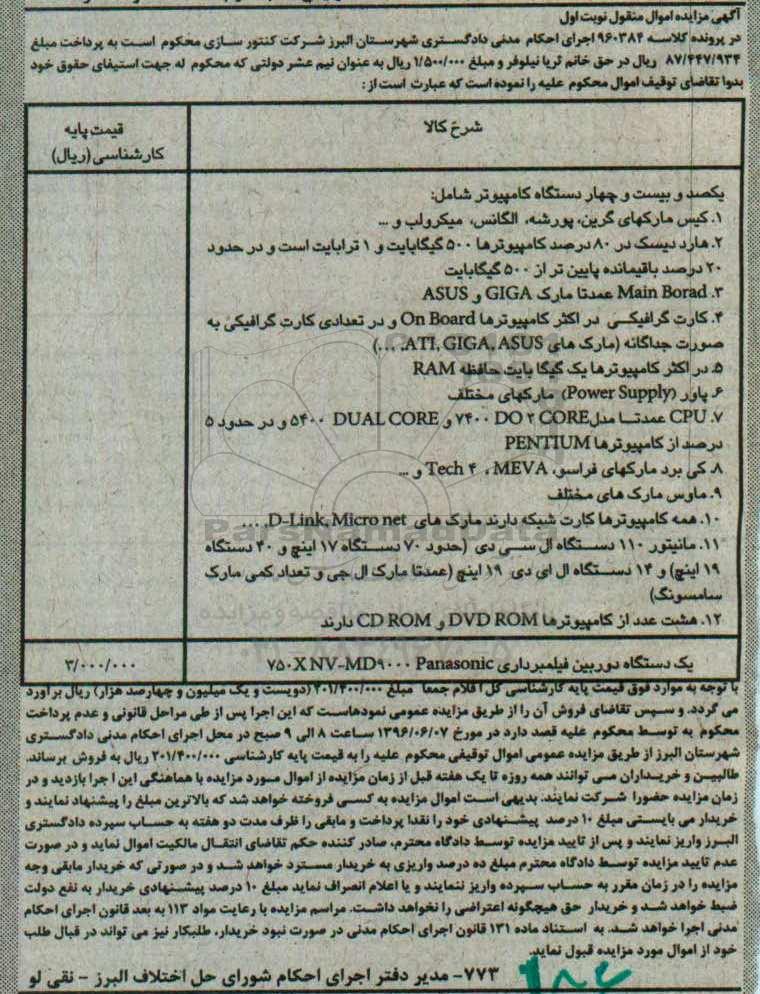 آگهی مزایده اموال منقول نوبت اول
در پرونده کلاسه ۹۶۰۳۸۴ اجرای احکام مدنی دادگستری شهرستان البرز شرکت کنتور سازی محکوم است به پرداخت مبلغ
۸۷/۴۴۷/۹۳۴ ریال در حق خانم ثریا نیلوفر و مبلغ ۱/۵۰۰/۰۰۰ ریال به عنوان نیم عشر دولتی که محکوم له جهت استیفای حقوق خود
بدوا تقاضای توقیف اموال محکوم علیه را نموده است که عبارت است از:
شرح کالا
قیمت پایه
کارشناسی (ریال)
یکصد و بیست و چهار دستگاه کامپیوتر شامل:
۱. کیس مارکهای گرین، پورشه، الگانس، میکرولب و ...
۲. هارد دیسک در ۸۰ درصد کامپیوترها ۵۰۰ گیگابایت و ۱ ترابایت است و در حدود
۲۰ درصد باقیمانده پایین تر از ۵۰۰ گیگابایت
۳. Main Borad عمدتا مارک GIGA و ASUS
۴. کارت گرافیکی در اکثر کامپیوترها On Board و در تعدادی کارت گرافیکی به
صورت جداگانه (مارک های ATI, GIGA, ASUS, ...)
۵. در اکثر کامپیوترها یک گیگا بایت حافظه RAM
۶. پاور (Power Supply) مارکهای مختلف
۷. CPU عمدتا مدل ۷۴۰۰ DO ۲ CORE و ۵۴۰۰ DUAL CORE و در حدود ۵
درصد از کامپیوترها PENTIUM
۸. کی برد مارکهای فراسو، Tech ۴ ، MEVA و ...
۹. ماوس مارک های مختلف
۱۰. همه کامپیوترها کارت شبکه دارند مارک های D-Link, Micro net, ...
۱۱. مانیتور ۱۱۰ دستگاه ال سی دی (حدود ۷۰ دستگاه ۱۷ اینچ و ۴۰ دستگاه
۱۹ اینچ) و ۱۴ دستگاه ال ای دی ۱۹ اینچ (عمدتا مارک ال جی و تعداد کمی مارک
سامسونگ)
۱۲. هشت عدد از کامپیوترها DVD ROM و CD ROM دارند
یک دستگاه دوربین فیلمبرداری ۷۵۰X NV-MD۹۰۰۰ Panasonic
۳/۰۰۰/۰۰۰
با توجه به موارد فوق قیمت پایه کارشناسی کل اقلام جمعا مبلغ ۲۰۱/۴۰۰/۰۰۰ (دویست و یک میلیون و چهارصد هزار) ریال برآورد
می گردد. و سپس تقاضای فروش آن را از طریق مزایده عمومی نموده‌است که این اجرا پس از طی مراحل قانونی و عدم پرداخت
محکوم به توسط محکوم علیه قصد دارد در مورخ ۱۳۹۶/۰۶/۰۷ ساعت ۸ الی ۹ صبح در محل اجرای احکام مدنی دادگستری
شهرستان البرز از طریق مزایده عمومی اموال توقیفی محکوم علیه را به قیمت پایه کارشناسی ۲۰۱/۴۰۰/۰۰۰ ریال به فروش برساند.
طالبین و خریداران می توانند همه روزه تا یک هفته قبل از زمان مزایده از اموال مورد مزایده با هماهنگی این اجرا بازدید و در
زمان مزایده حضورا شرکت نمایند. بدیهی است اموال مزایده به کسی فروخته خواهد شد که بالاترین مبلغ را پیشنهاد نمایند و
خریدار می بایستی مبلغ ۱۰ درصد پیشنهادی خود را نقدا پرداخت و مابقی را ظرف مدت دو هفته به حساب سپرده دادگستری
البرز واریز نمایند و پس از تایید مزایده توسط دادگاه محترم، صادر کننده حکم تقاضای انتقال مالکیت اموال نماید و در صورت
عدم تایید مزایده توسط دادگاه محترم مبلغ ده درصد واریزی به خریدار مسترد خواهد شد و در صورتی که خریدار مابقی وجه
مزایده را در زمان مقرر به حساب سپرده واریز ننمایند و یا اعلام انصراف نماید مبلغ ۱۰ درصد پیشنهادی خریدار به نفع دولت
ضبط خواهد شد و خریدار حق هیچگونه اعتراضی را نخواهد داشت. مراسم مزایده با رعایت مواد ۱۱۳ به بعد قانون اجرای احکام
مدنی اجرا خواهد شد. به استناد ماده ۱۳۱ قانون اجرای احکام مدنی در صورت نبود خریدار، طلبکار نیز می تواند در قبال طلب
خود از اموال مورد مزایده قبول نماید.
۷۷۳- مدیر دفتر اجرای احکام شورای حل اختلاف البرز - نقی لو